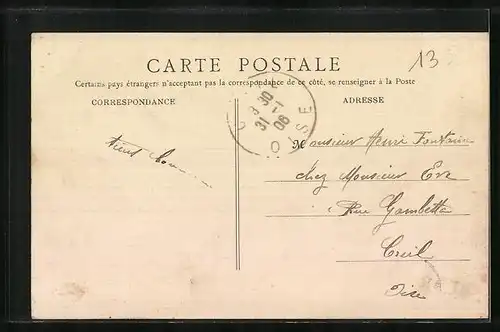 13
CARTE POSTALE
Certains pays étrangers n'acceptant pas la correspondance de ce côté, se renseigner à la Poste
CORRESPONDANCE
ADRESSE
8 30
31 -1
06
OISE
Monsieur Henri Fontaine
chez Monsieur
Rue Gambetta
Creil
Oise